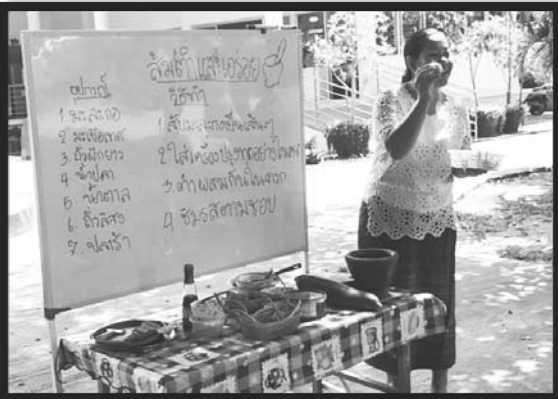 ส้มตำแสนอร่อย
อุปกรณ์
1. มะละกอ
2 มะเขือเทศ
3. ถั่วฝักยาว
4. น้ำปลา
5. น้ำตาล
6. ถั่วลิสง
7. ปลาร้า
วิธีทำ
1. สับมะละกอเป็นเส้นๆ
2 ใส่เครื่องปรุงทุกอย่างในครก
3. ตำผสมกันในครก
4. ชิมรสตามชอบ